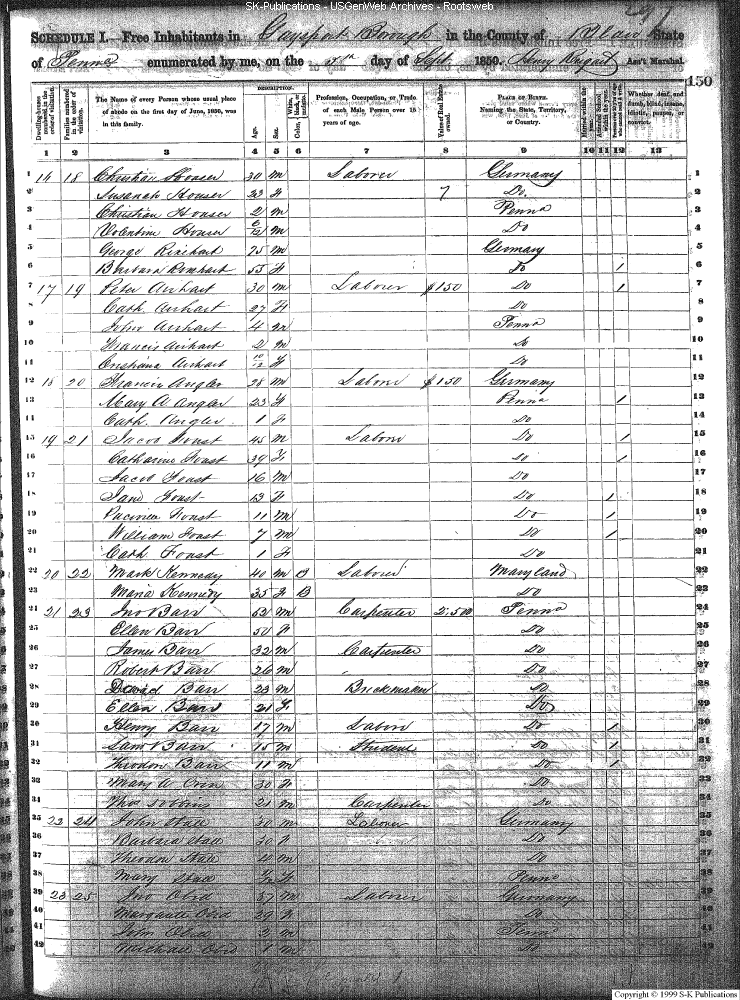 SK-Publications - USGenWeb Archives - Rootsweb
SCHEDULE I. Free Inhabitants in Gaysport Borough in the County of Blair State
of Penna enumerated by me, on the 5th day of Sept. 1850. Ass't Marshal.
150
Dwelling-houses numbered in the order of visitation.
Families numbered in the order of visitation.
The Name of every Person whose usual place of abode on the first day of June, 1850, was in this family.
DESCRIPTION.
Age.
Sex.
White, black, or mulatto.
Color,
Profession, Occupation, or Trade of each Male Person over 15 years of age.
Value of Real Estate owned.
PLACE OF BIRTH. Naming the State, Territory, or Country.
Married within the year.
Attended School within the year.
Persons over 20 y'rs of age who cannot read & write.
Whether deaf and dumb, blind, insane, idiotic, pauper, or convict.
1 2 3 4 5 6 7 8 9 10 11 12 13
1 18 Christian Houser 30 m Laborer Germany 1
2 Susanah Houser 23 f Do. 2
3 Christian Houser 2 m Penna 3
4 Valentine Houser m Do 4
5 George 75 m Germany 5
6 Barbara 55 f Do 1 6
7 17 19 Peter Airhart 30 m Laborer $150 Do 1 7
8 Cath. Airhart 27 f Do 8
9 John Airhart 4 m Penna 9
10 Francis Airhart 2 m Do 10
11 Airhart 10/12 f Do 11
12 18 20 Francis Angler 28 m Laborer $150 Germany 12
13 Mary A Angler 23 f Penna 1 13
14 Cath. Angler 1 f Do 14
15 19 21 Jacob Foust 45 m Laborer Do 1 15
16 Catharine Foust 39 f Do 1 16
17 Jacob Foust 16 m Do 17
18 Jane Foust 13 f Do 1 18
19 Foust 11 m Do 1 19
20 William Foust 7 m Do 1 20
21 Cath Foust 1 f Do 21
22 20 22 Mark Kennedy 40 m B Laborer Maryland 22
23 Maria Kennedy 35 f B Do 23
24 21 23 Jno Barr 52 m Carpenter 2.500 Penna 24
25 Ellen Barr 50 f Do 25
26 James Barr 32 m Carpenter Do 26
27 Robert Barr 26 m Do 27
28 David Barr 23 m Brickmaker Do 28
29 Ellen Barr 21 f Do 29
30 Henry Barr 17 m Labore Do 1 30
31 Saml Barr 15 m Student Do 1 31
32 Barr 11 m Do 1 32
33 Mary A 30 f Do 33
34 Thos 21 m Carpenter Do 34
35 22 24 John Stall 30 m Laborer Germany 35
36 Barbara Stall 30 f Do 36
37 Stall 4 m Do 37
38 Mary Stall f Penna 38
39 23 25 Jno 37 m Laborer Germany 39
40 29 f Do 40
41 John 2 m Penna 41
42 Michael 1 m Do 42
Copyright © 1999 S-K Publications